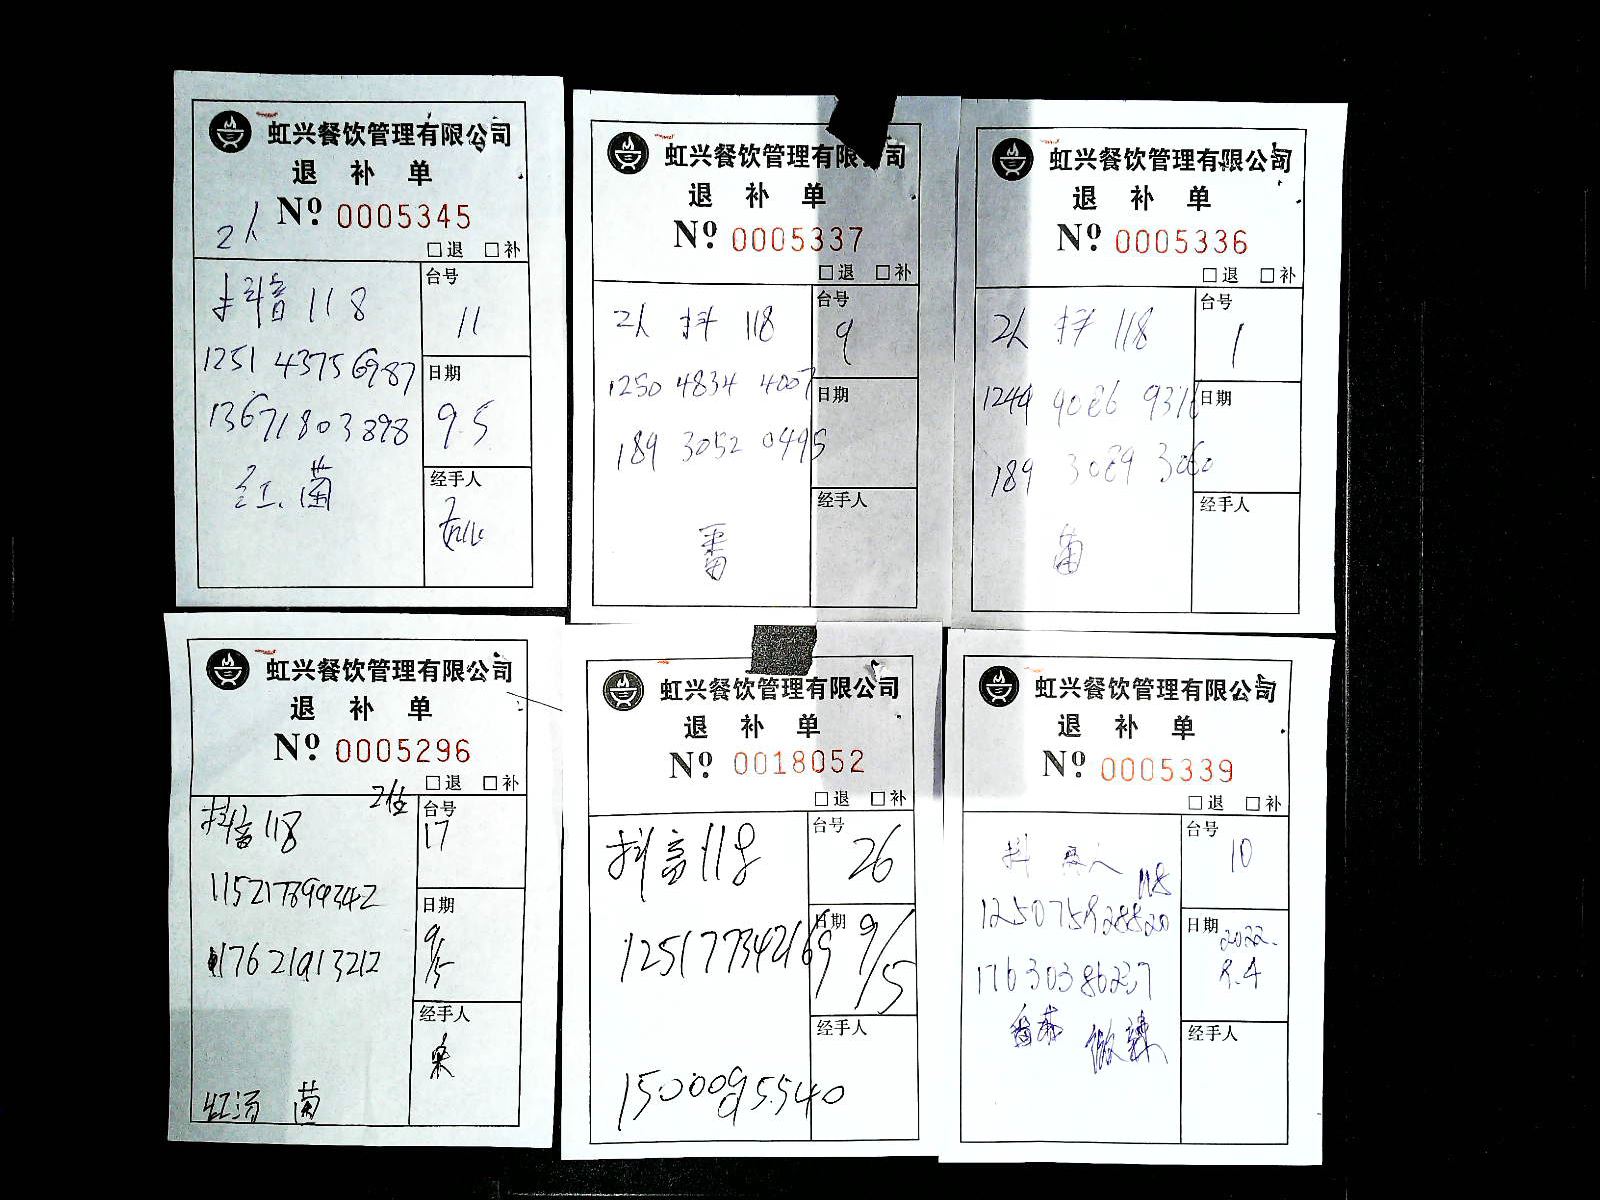 虹兴餐饮管理有限公司
退 补 单
2人 Nº 0005345
□退 □补
抖音 118
台号
11
1251 4375 6987
日期
13671803898
9.5
红、菌
经手人
虹兴餐饮管理有限公司
退 补 单
Nº 0005337
□退 □补
2人 抖 118
台号
9
1250 4834 4007
日期
189 3052 0495
经手人
番
虹兴餐饮管理有限公司
退 补 单
Nº 0005336
□退 □补
2人 抖 118
台号
1
1244 9086 9316
日期
189 3089 3060
经手人
菌
虹兴餐饮管理有限公司
退 补 单
Nº 0005296
□退 □补
2位
抖音118
台号
17
115217899342
日期
9/5
17621913212
经手人
红汤 菌
虹兴餐饮管理有限公司
退 补 单
Nº 0018052
□退 □补
抖音118
台号
26
125177342169
日期
9/5
经手人
1500095540
虹兴餐饮管理有限公司
退 补 单
Nº 0005339
□退 □补
抖
118
台号
10
125075928820
日期
2022.
17630386237
经手人
微辣